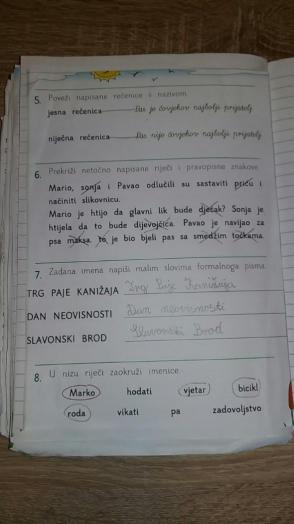 5. Poveži napisane rečenice s nazivom.
jesna rečenica Pas je čovjekov najbolji prijatelj.
niječna rečenica Pas nije čovjekov najbolji prijatelj.
6. Prekriži netočno napisane riječi i pravopisne znakove.
Mario, sonja i Pavao odlučili su sastaviti priču i
načiniti slikovnicu.
Mario je htijo da glavni lik bude dječak? Sonja je
htjela da to bude dijevojčica. Pavao je navijao za
psa maksa. to, je bio bjeli pas sa smeđim točkama.
7. Zadana imena napiši malim slovima formalnoga pisma.
TRG PAJE KANIŽAJA Trg Paje Kanižaja
DAN NEOVISNOSTI Dan neovisnosti
SLAVONSKI BROD Slavonski Brod
8. U nizu riječi zaokruži imenice.
Marko hodati vjetar bicikl
roda vikati pa zadovoljstvo